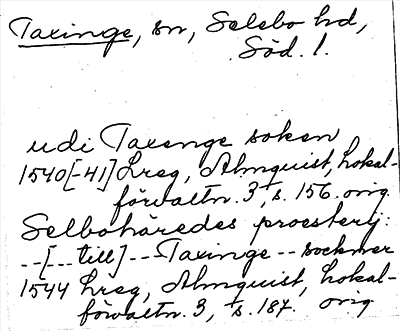 Taxinge, sn, Selebo hd,
Söd. l.
udi Taxenge soken
1540[-41] Lreg, Almquist, Lokal-
förvaltn. 3, s. 156. orig
Selbohäredes proesterij:
--[--till]---Taxinge--sockner
1544 Lreg, Almquist, Lokal-
förvaltn. 3, s. 184. orig